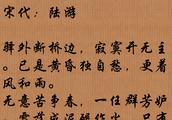 宋代：陆游
驿外断桥边，寂寞开无主
。已是黄昏独自愁，更着
风和雨。
无意苦争春，一任群芳妒